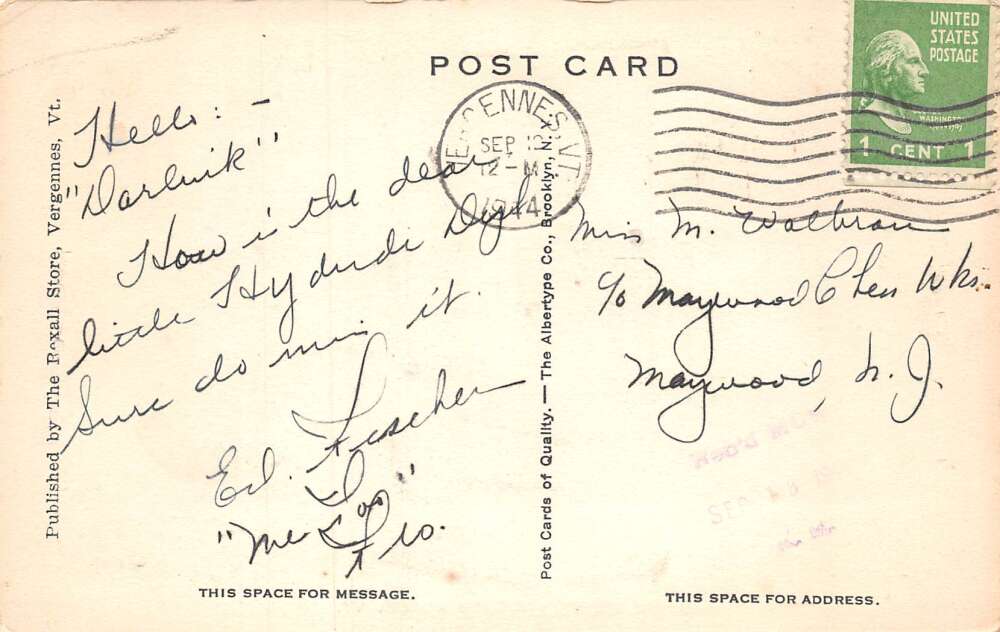 POST CARD
UNITED
STATES
POSTAGE
WASHINGTON
1 CENT 1
VERGENNES, VT.
SEP 12
12-M
1944
Hello:-
"Darlink"
How is the dear
little Hydudi Dyh
Sure do miss it.
Ed. Fischer
"Me Too"
Miss M. Walbran
c/o Maywood Chem Wks.
Maywood, N. J.
REC'D
SEP 18
Published by The Rexall Store, Vergennes, Vt.
Post Cards of Quality. — The Albertype Co., Brooklyn, N. Y.
THIS SPACE FOR MESSAGE.
THIS SPACE FOR ADDRESS.